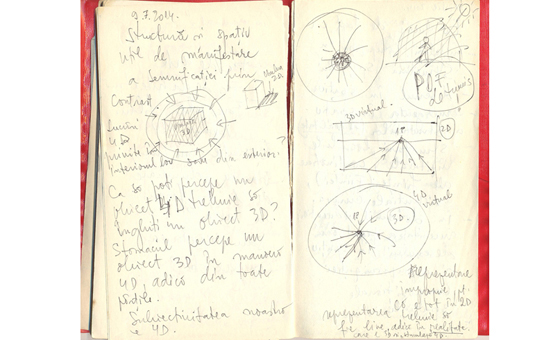 9.7.2014.
Structură și spațiu
util de manifestare
a semnificației prin
Contrast
Umbra
2D
obiect
3D
Lucruri
4D
privite în
interiorul lor sau din exterior?
Ca să poți percepe un
obiect 4D trebuie să
înghiți un obiect 3D?
Stomacul percepe un
obiect 3D în manieră
4D, adică din toate
părțile.
Subiectivitatea noastră
e 4D.
PDF
3D virtual.
2D
1P
4D
virtual
1P
3D
Reprezentare
improprie pt.
că e tot în 2D
reprezentarea trebuie să
fie
adică în realitate.